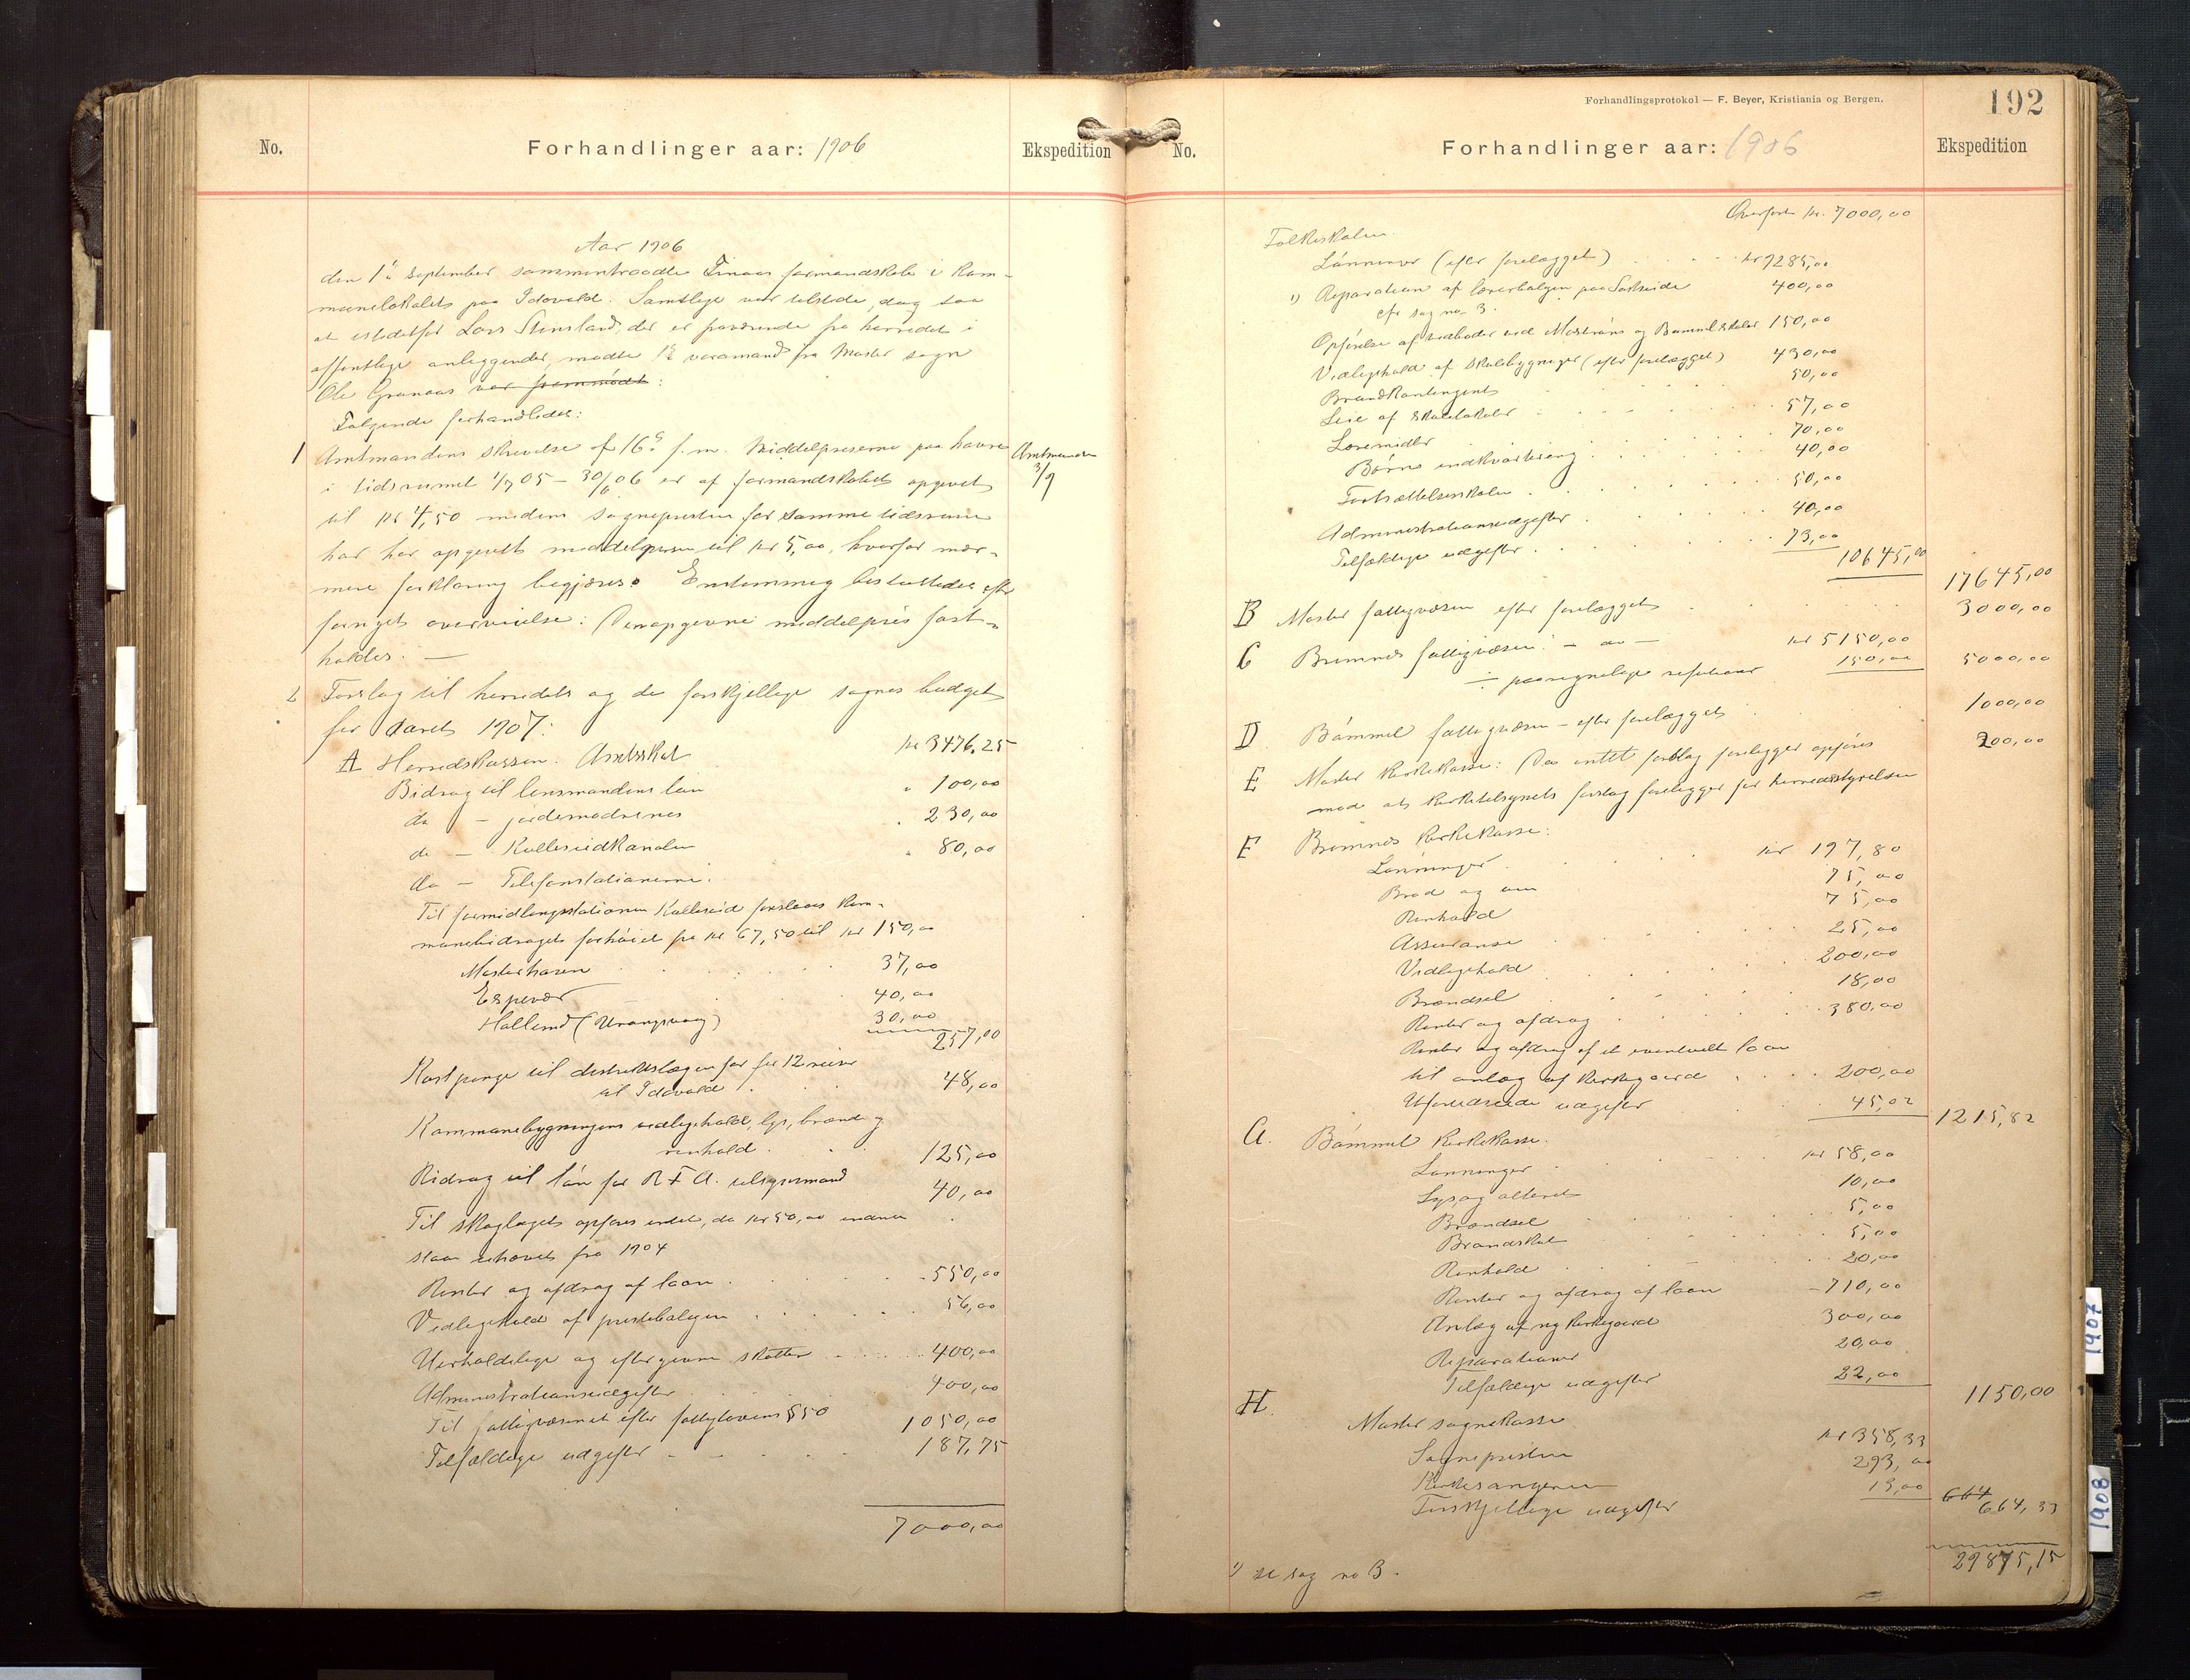 No.
Forhandlinger aar: 1906
Ekspedition
Aar 1906
den 1ste september sammentraadte Finaas formandskab i kom-
munelokalet paa Idavold. Samtlige var tilstede, dog saa
at istedetfor Lars Stensland, der er fraværende fra herredet i
offentlige anliggender, mødte 1ste varamand fra Moster sogn
Ole Granaas var fremmødt:
Følgende forhandledes:
1 Amtmandens skrivelse af 16de f. m. Middelpriserne paa havre
Amtmanden
3/9
i tidsrummet 1/7 05 – 30/6 06 er af formandskabet opgivet
til kr 4,50 medens sognepresten for samme tidsrum
har har opgivet middelprisen til kr 5,00, hvorfor nær-
mere forklaring begjæres. Enstemmig besluttedes efter
fornyet overveielse: Den opgivne middelpris fast-
holdes. —
2 Forslag til herredets og de forskjellige sognes budget
for aaret 1907:
A Herredskassen. Amtsskat kr 3476,25
Bidrag til lensmandens løn " 100,00
do – jordemødrenes " 230,00
do – Kulleseidkanalen " 80,00
do – Telefonstationerne.
Til formidlingsstationen Kulleseid foreslaaes kom-
munebidraget forhøiet fra kr 67,50 til kr 150,00
Mosterhavn 37,00
Espevær 40,00
Hallem (Urangsvaag) 30,00
257,00
Kostpenge til distriktslægen for for 12 reiser
til Idavold 48,00
Kommunebygningens vedligehold, lys, brænde og
renhold 125,00
Bidrag til løn for R F A. tilsynsmand 40,00
Til skoglaget opføres intet, da kr 50,00 endnu
staar uhævet fra 1904
Renter og afdrag af laan 550,00
Vedligehold af prestebolgen 56,00
Uerholdelige og eftergivne skatter 400,00
Administrationsudgifter 400,00
Til fattigvæsenet efter fattiglovens § 50 1050,00
Tilfældige udgifter 187,75
7000,00
Forhandlingsprotokol — F. Beyer, Kristiania og Bergen.
192
No.
Forhandlinger aar: 1906
Ekspedition
Overført kr. 7000,00
Folkeskolen.
Lønninger (efter forelægget) kr 9285,00
1) Reparation af lærerbolgen paa Sortveide 400,00
cfr sag no. 3.
Opførelse af vedboder ved Mosters og Bømmel skoler 150,00
Vedligehold af skolebygninger (efter forelægget) 430,00
Brandkontingent 50,00
Leie af skolelokaler 57,00
Læremidler 70,00
Børns indkvartering 40,00
Fortsættelsesskolen 50,00
Administrationsudgifter 40,00
Tilfældige udgifter 73,00
10645,00
17645,00
B Moster fattigvæsen efter forelægget 3000,00
C Bremnes fattigvæsen – do – kr 5150,00
÷ paaregnelige refusioner 150,00 5000,00
D Bømmel fattigvæsen – efter forelægget 1000,00
E Moster kirkekasse: Da intet forslag foreligger opføres 200,00
mod at kirketilsynets forslag foreligger for herredsstyrelsen
F Bremnes kirkekasse:
Lønninger kr 197,80
Brød og vin 75,00
Renhold 75,00
Assurance 25,00
Vedligehold 200,00
Brændsel 18,00
Renter og afdrag 380,00
Renter og afdrag af et eventuelt laan
til anlæg af kirkegaard 200,00
Uforudseede udgifter 45,02
1215,82
G. Bømmel kirkekasse.
Lønninger kr 58,00
Lys og alteret 10,00
Brændsel 5,00
Brandskat 5,00
Renhold 20,00
Renter og afdrag af laan 710,00
Anlæg af ny kirkegaard 300,00
Reparationer 20,00
Tilfældige udgifter 22,00
1150,00
H. Moster sognekasse
Sognepresten kr 358,33
Kirkesangeren 293,00
Forskjellige udgifter 13,00
664 664,33
29875,15
1) se sag no 3.
1907
1908